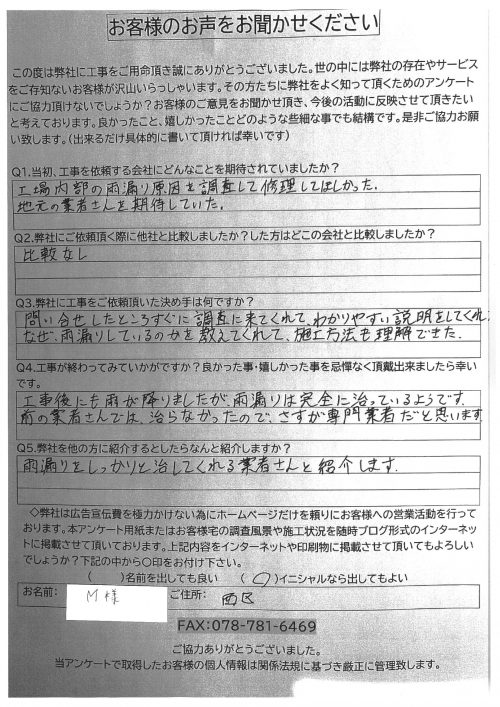 お客様のお声をお聞かせください
この度は弊社に工事をご用命頂き誠にありがとうございました。世の中には弊社の存在やサービス
をご存知ないお客様が沢山いらっしゃいます。その方たちに弊社をよく知って頂くためのアンケート
にご協力頂けないでしょうか？お客様のご意見をお聞かせ頂き、今後の活動に反映させて頂きたい
と考えております。良かったこと、嬉しかったことどのような些細な事でも結構です。是非ご協力お願
い致します。（出来るだけ具体的に書いて頂ければ幸いです）
Q1.当初、工事を依頼する会社にどんなことを期待されていましたか？
工場内部の雨漏り原因を調査して修理してほしかった.
地元の業者さんを期待していた.
Q2.弊社にご依頼頂く際に他社と比較しましたか？した方はどこの会社と比較しましたか？
比較なし
Q3.弊社に工事をご依頼頂いた決め手は何ですか？
問い合せしたところすぐに調査に来てくれて、わかりやすい説明をしてくれ、
なぜ、雨漏りしているのかを教えてくれて、施工方法も理解できた.
Q4.工事が終わってみていかがですか？良かった事・嬉しかった事を忌憚なく頂戴出来ましたら幸い
です。
工事後にも雨が降りましたが、雨漏りは完全に治っているようです.
前の業者さんでは、治らなかったので、さすが専門業者だと思います
Q5.弊社を他の方に紹介するとしたらなんと紹介しますか？
雨漏りをしっかりと治してくれる業者さんと紹介します.
◇弊社は広告宣伝費を極力かけない為にホームページだけを頼りにお客様への営業活動を行って
おります。本アンケート用紙またはお客様宅の調査風景や施工状況を随時ブログ形式のインターネッ
トに掲載させて頂いております。上記内容をインターネットや印刷物に掲載させて頂いてもよろしい
でしょうか？下記の中から〇印をお付け下さい。
（　）名前を出しても良い　（〇）イニシャルなら出してもよい
お名前： M様 ご住所： 西区
FAX:078-781-6469
ご協力ありがとうございました。
当アンケートで取得したお客様の個人情報は関係法規に基づき厳正に管理致します。